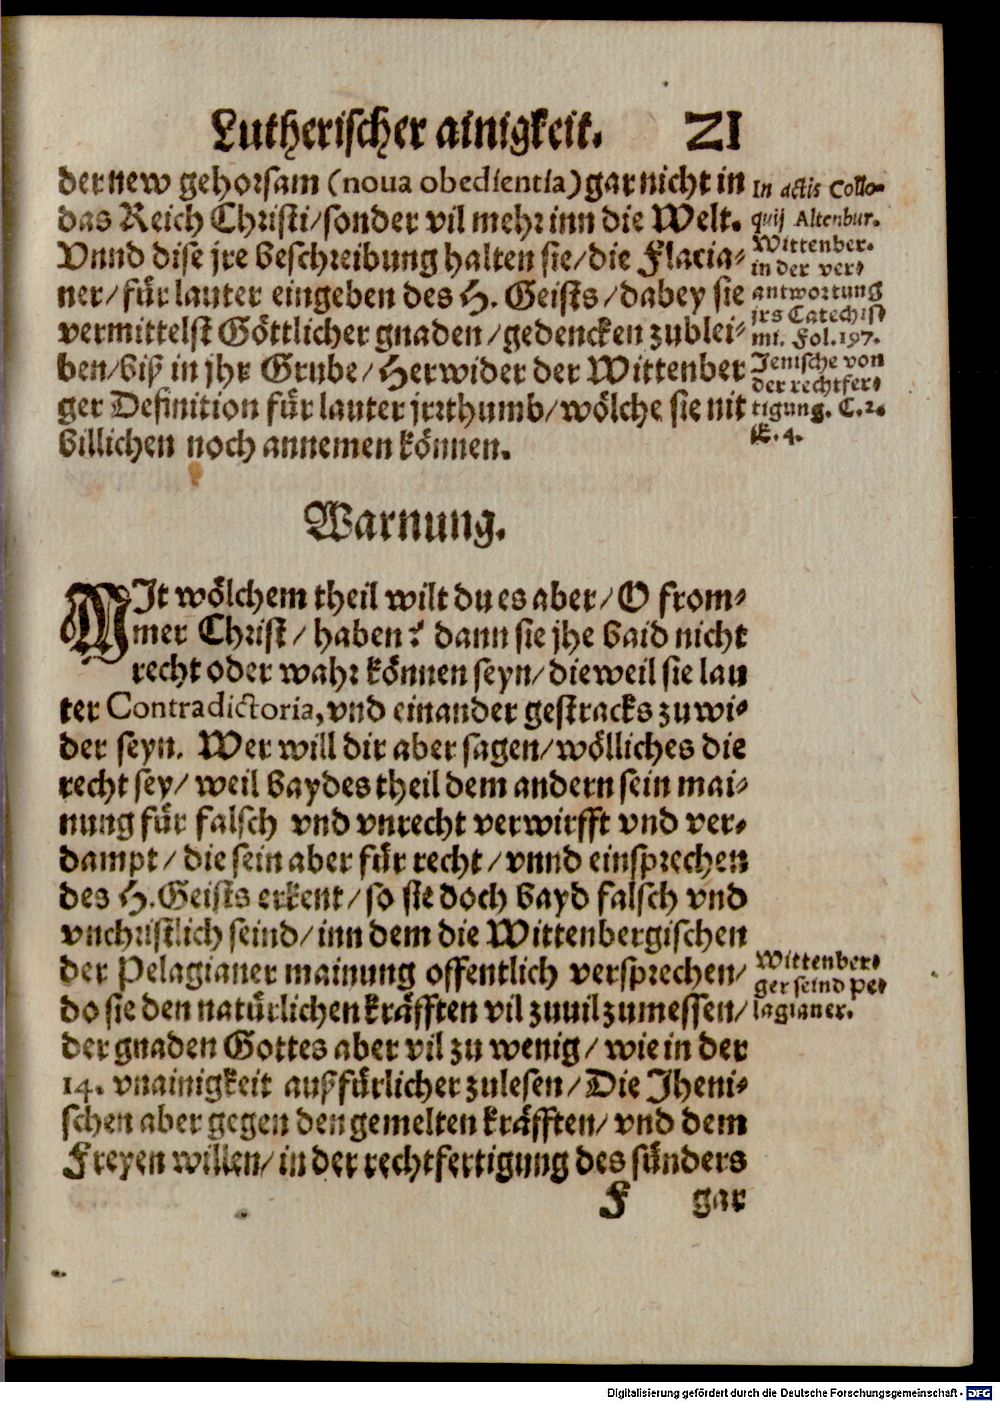 Lutherischer ainigkeit. 21
der new gehorsam (noua obedientia) gar nicht in
das Reich Christi/sonder vil mehr inn die Welt.
Vnnd dise jre beschreibung halten sie/die Flacia-
ner/für lauter eingeben des H. Geists/dabey sie
vermittelst Göttlicher gnaden/gedencken zublei-
ben/biß in jhr Grube/Herwider der Wittenber
ger Definition für lauter jrrthumb/wölche sie nit
billichen noch annemen können.
In actis Collo-
quij Altenbur.
Wittenber.
in der ver-
antwortung
jrs Catechis
mi. Fol. 197.
Jenische von
der rechtfer-
tigung. C. 2.
& . 4.
Warnung.
MIt wölchem theil wilt du es aber/O from-
mer Christ/haben? dann sie jhe baid nicht
recht oder wahr können seyn/dieweil sie lau
ter Contradictoria, vnd einander gestracks zuwi-
der seyn. Wer will dir aber sagen/wölliches die
recht sey/weil baydes theil dem andern sein mai-
nung für falsch vnd vnrecht verwirfft vnd ver-
dampt/die sein aber für recht/vnnd einsprechen
des H. Geists erkent/so sie doch bayd falsch vnd
vnchristlich seind/inn dem die Wittenbergischen
der Pelagianer mainung offentlich versprechen/
do sie den natürlichen kräfften vil zuuil zumessen/
der gnaden Gottes aber vil zu wenig/wie in der
14. vnainigkeit außfürlicher zulesen/Die Jheni-
schen aber gegen den gemelten kräfften/vnd dem
Freyen willen/in der rechtfertigung des sünders
Wittenber-
ger seind Pe-
lagianer.
F gar
Digitalisierung gefördert durch die Deutsche Forschungsgemeinschaft - DFG